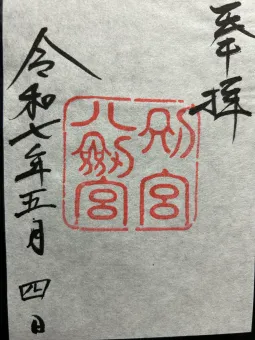 奉拝
八劔宮
令和七年五月四日